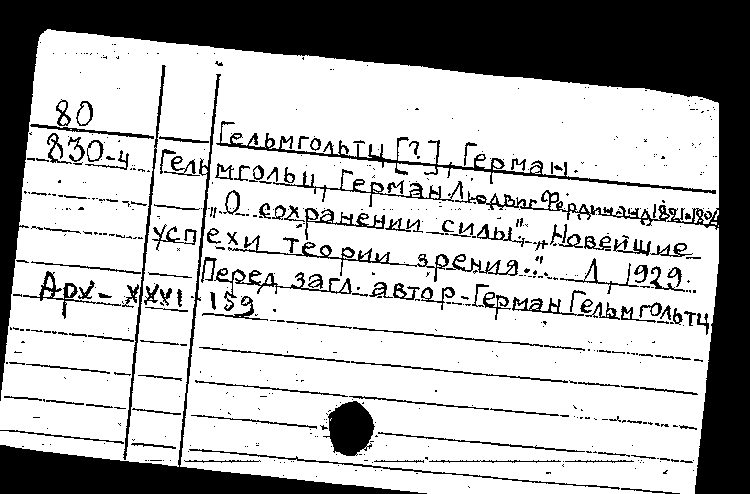 80
830-ч
Гельмгольтц [?], Герман.
Гельмгольц, Герман Людвиг Фердинанд 1821-1894
„О сохранении силы", „Новейшие
успехи теории зрения..". Л, 1929.
Перед загл. автор-Герман Гельмгольтц
Арх-XXXVI-159.